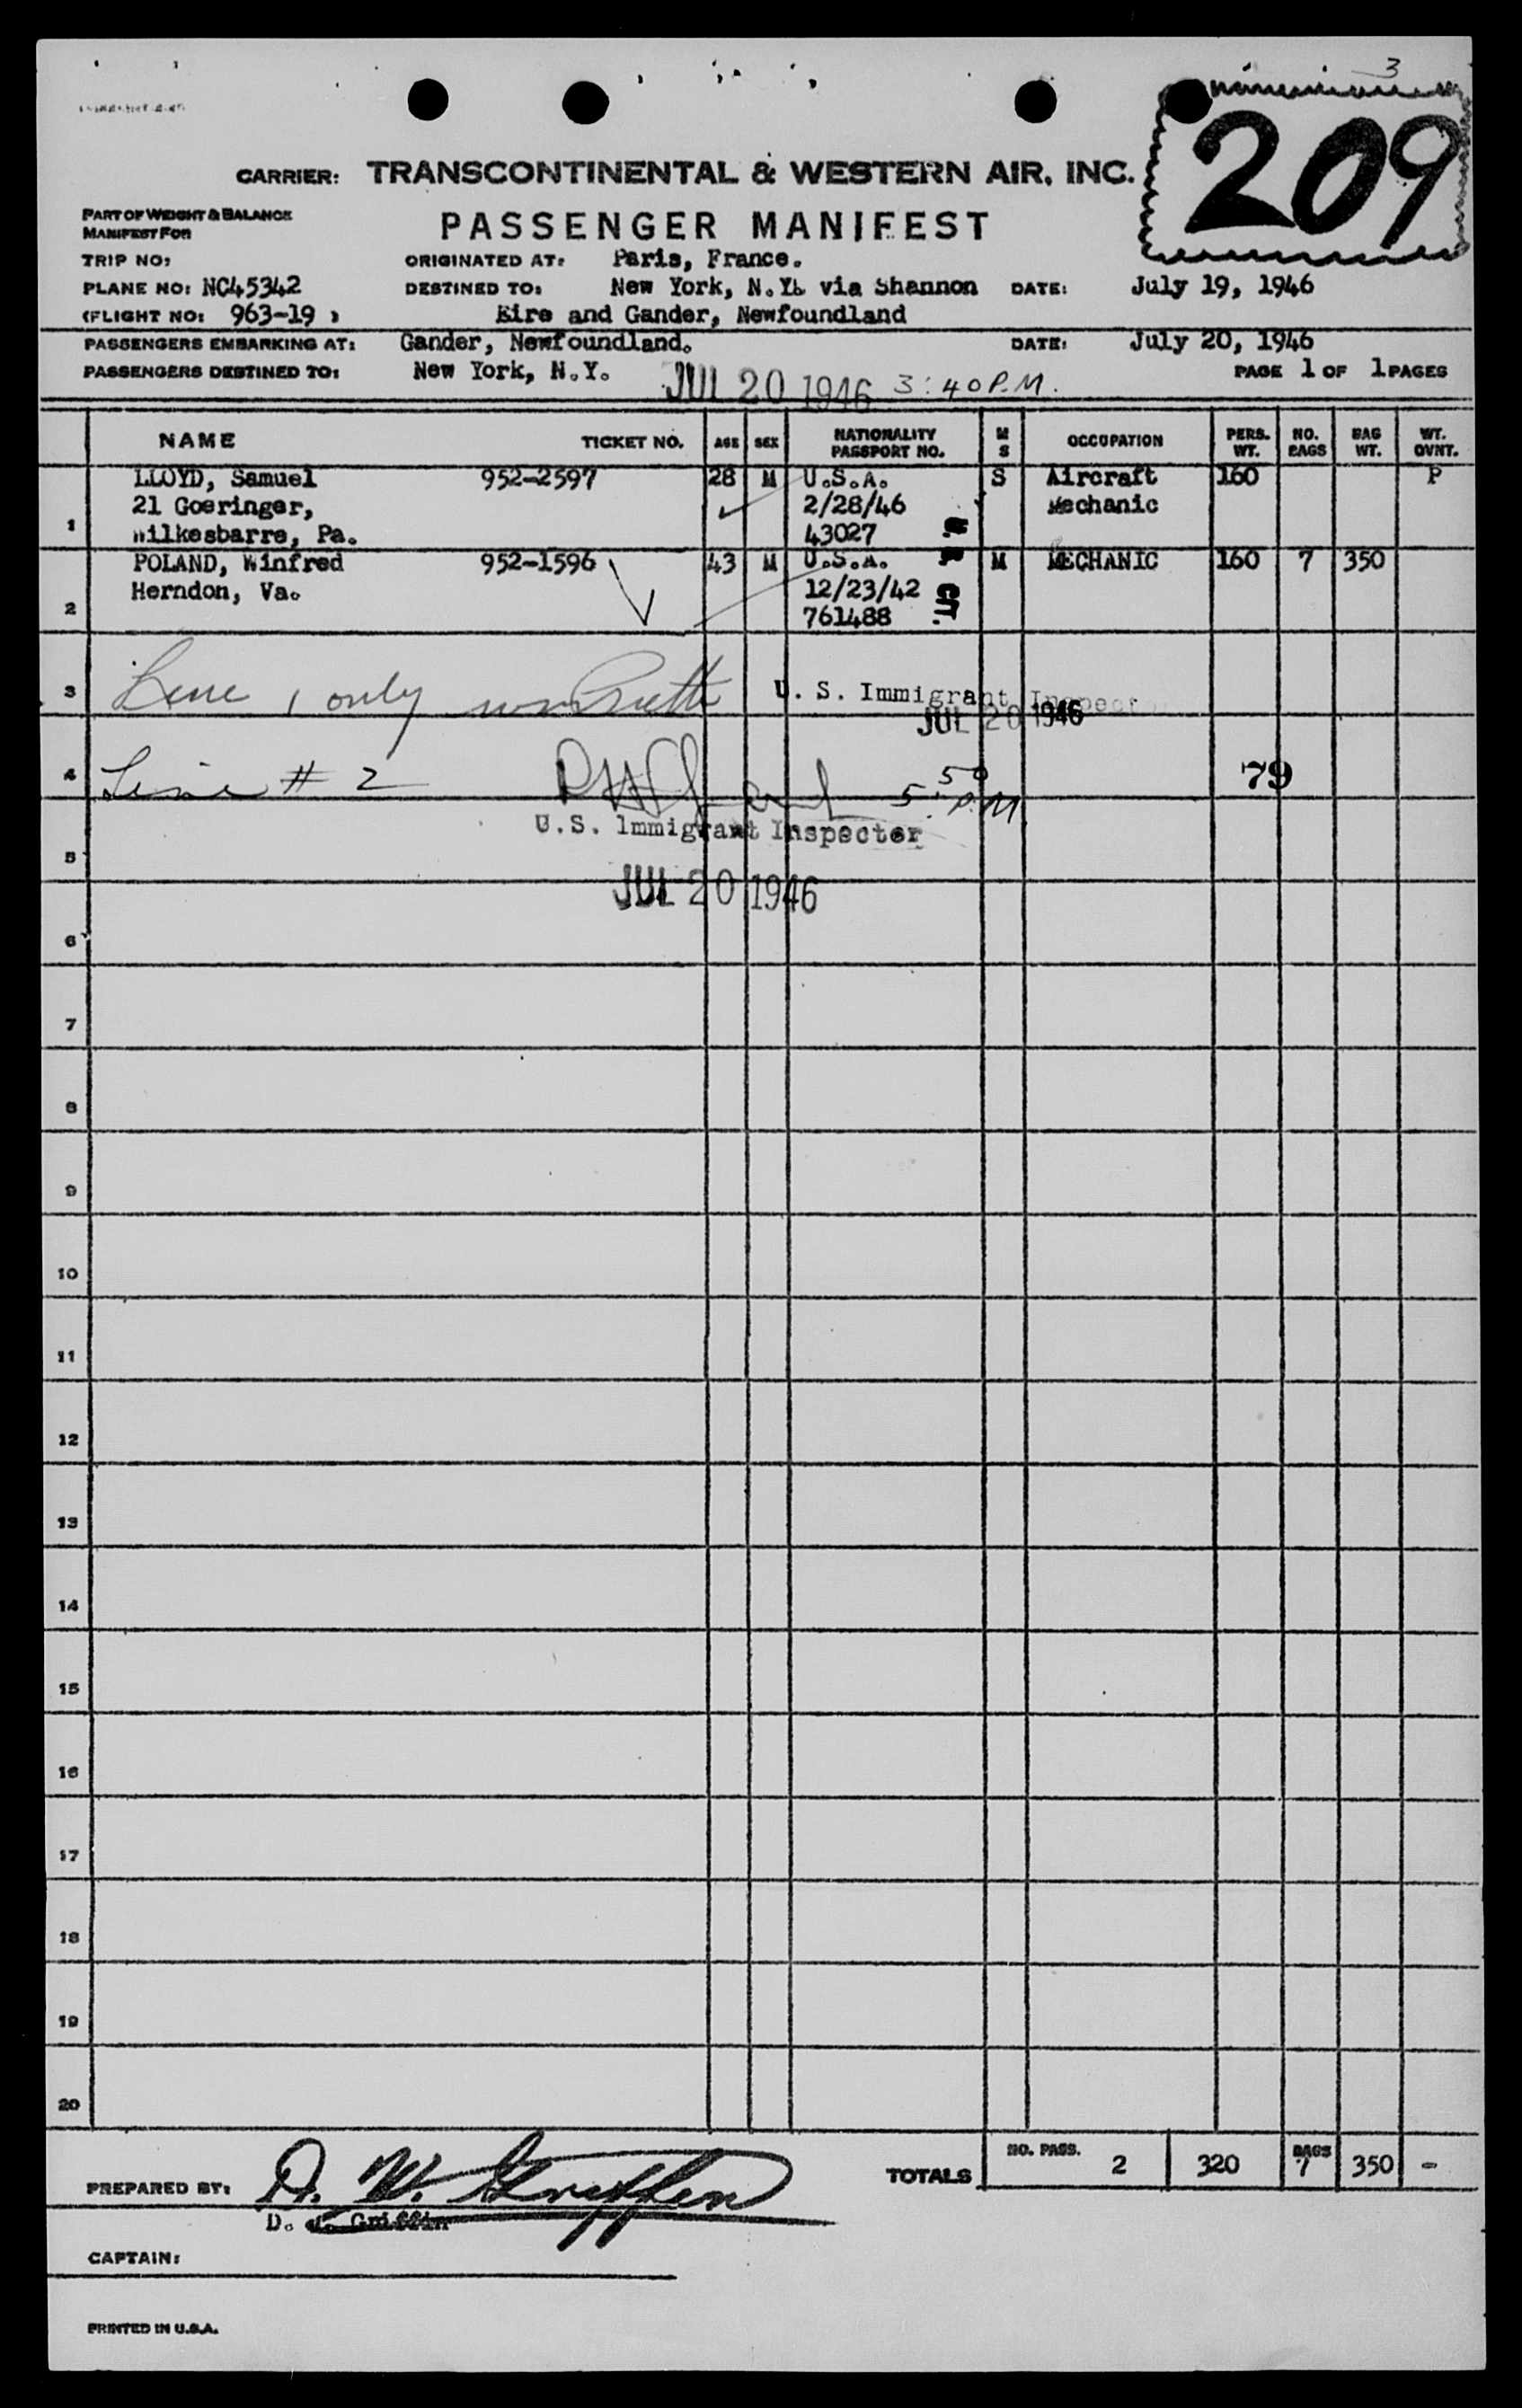 3
209
CARRIER: TRANSCONTINENTAL & WESTERN AIR, INC.
PART OF WEIGHT & BALANCE
MANIFEST FOR
PASSENGER MANIFEST
TRIP NO: ORIGINATED AT: Paris, France.
PLANE NO: NC45342 DESTINED TO: New York, N.Y. via Shannon DATE: July 19, 1946
(FLIGHT NO: 963-19 ) Eire and Gander, Newfoundland
PASSENGERS EMBARKING AT: Gander, Newfoundland. DATE: July 20, 1946
PASSENGERS DESTINED TO: New York, N.Y. JUL 20 1946 3:40 P.M. PAGE 1 OF 1 PAGES
NAME TICKET NO. AGE SEX NATIONALITY PASSPORT NO. M S OCCUPATION PERS. WT. NO. BAGS BAG WT. WT. OVNT.
LLOYD, Samuel 952-2597 28 M U.S.A. S Aircraft 160 P
21 Goeringer, 2/28/46 Mechanic
1 Wilkesbarre, Pa. 43027
POLAND, Winfred 952-1596 43 M U.S.A. M MECHANIC 160 7 350
Herndon, Va. 12/23/42
2 761488
U. S. CIT.
3 Line 1 only U. S. Immigrant Inspector
JUL 20 1946
4 Line # 2 5:50 P.M. 79
U.S. Immigrant Inspecter
5
JUL 20 1946
6
7
8
9
10
11
12
13
14
15
16
17
18
19
20
TOTALS NO. PASS. 2 320 BAGS 7 350 -
PREPARED BY: D. W. Griffin
D. Griffin
CAPTAIN:
PRINTED IN U.S.A.